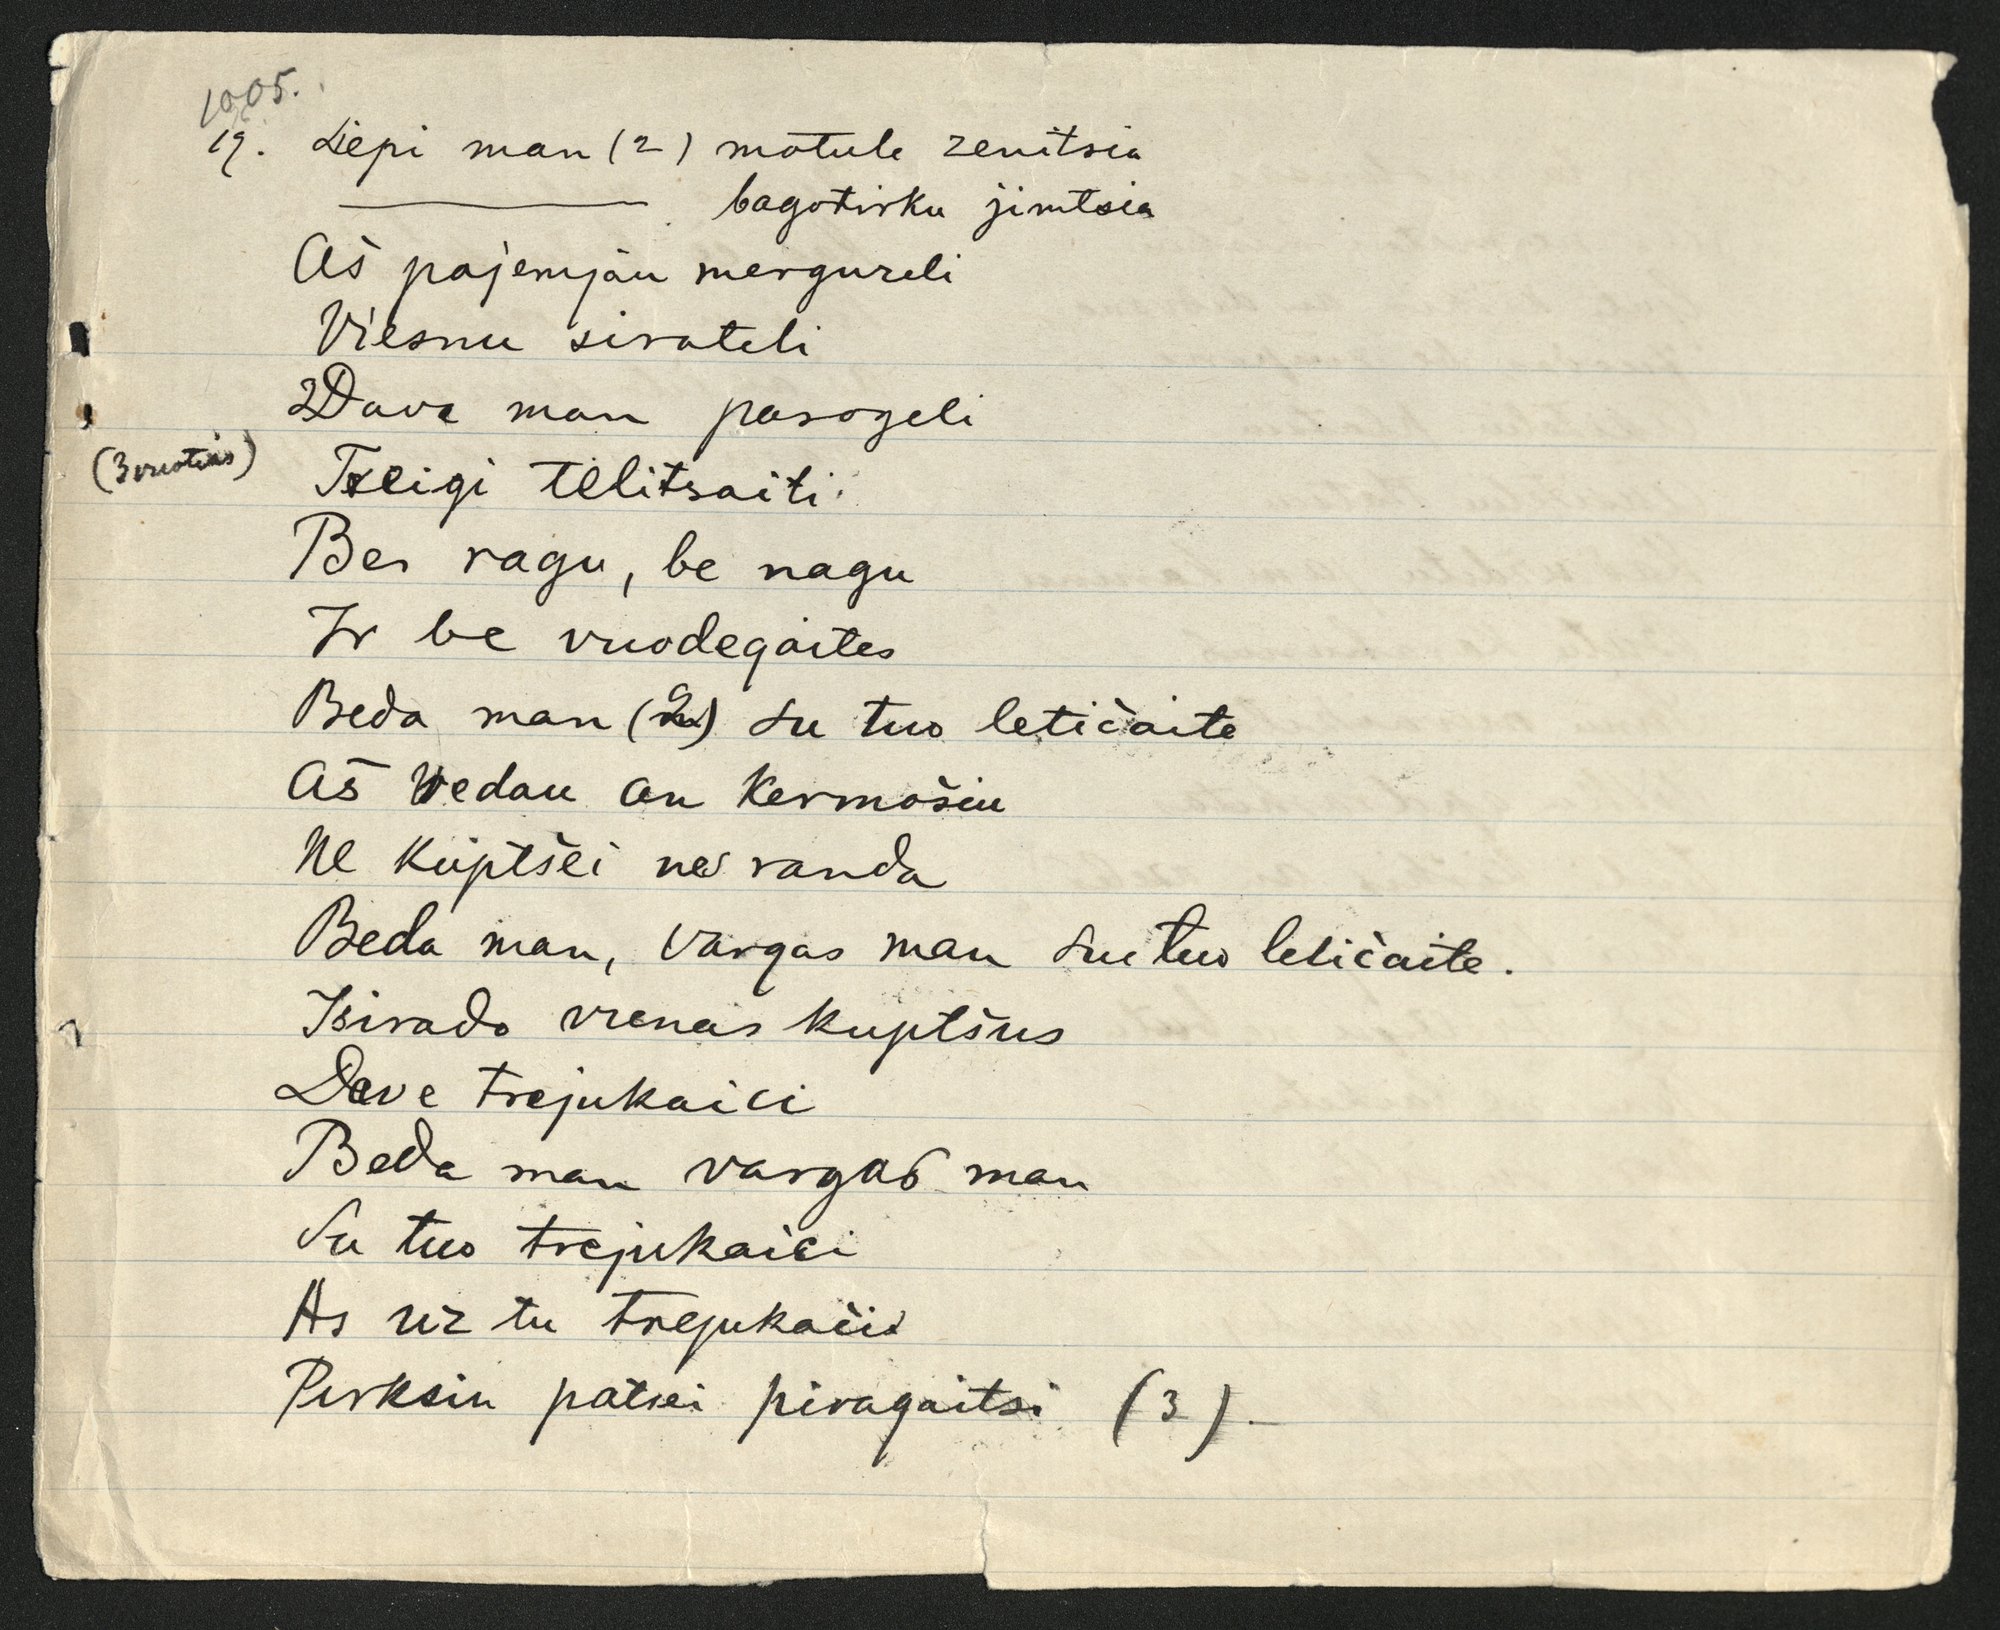 1005.
19. Liepi man (2) motule zenitsia
——— bagotirku jimtsia
Aš pajemjau mergureli
Viesnu sirateli
2 Dave man pasogeli
(3 vuotias) Treigi telitsaiti.
Bes ragu, be nagu
Ir be vuodegaites
Beda man (2) su tuo letičaite
Aš vedau an Kermošiu
Ne Kuptšei ne randa
Beda man, vargas man su tuo letičaite.
Isirado vienas kuptšus
Dave trejukaici
Beda man vargas man
Su tuo trejukaici
As uz tu trejukaiči
Pirksiu patsei piragaitsi (3).–